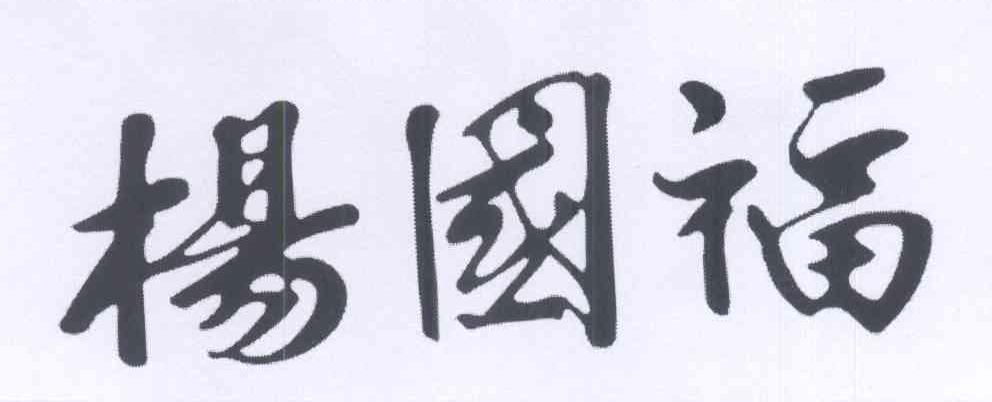 楊國福